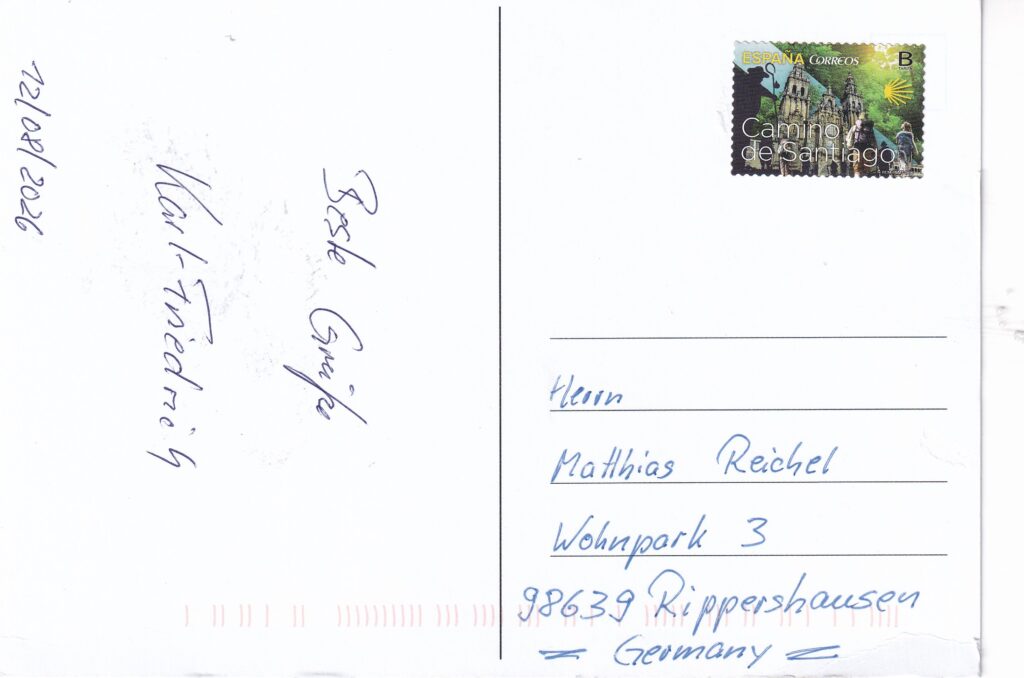 12/08/2026
Beste Grüße
Karl-Friedrich
ESPAÑA CORREOS
B
Camino
de Santiago
Herrn
Matthias Reichel
Wohnpark 3
98639 Rippershausen
Germany